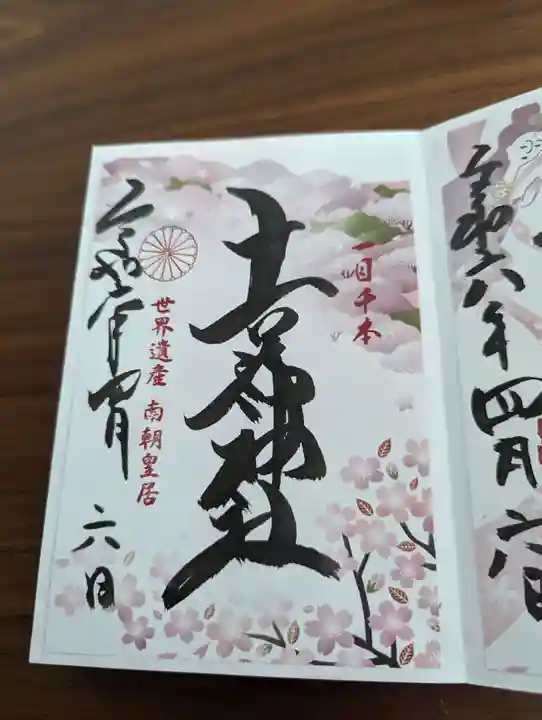 一目千本
吉水神社
世界遺産 南朝皇居
令和六年四月
六日
令和六年四月六日